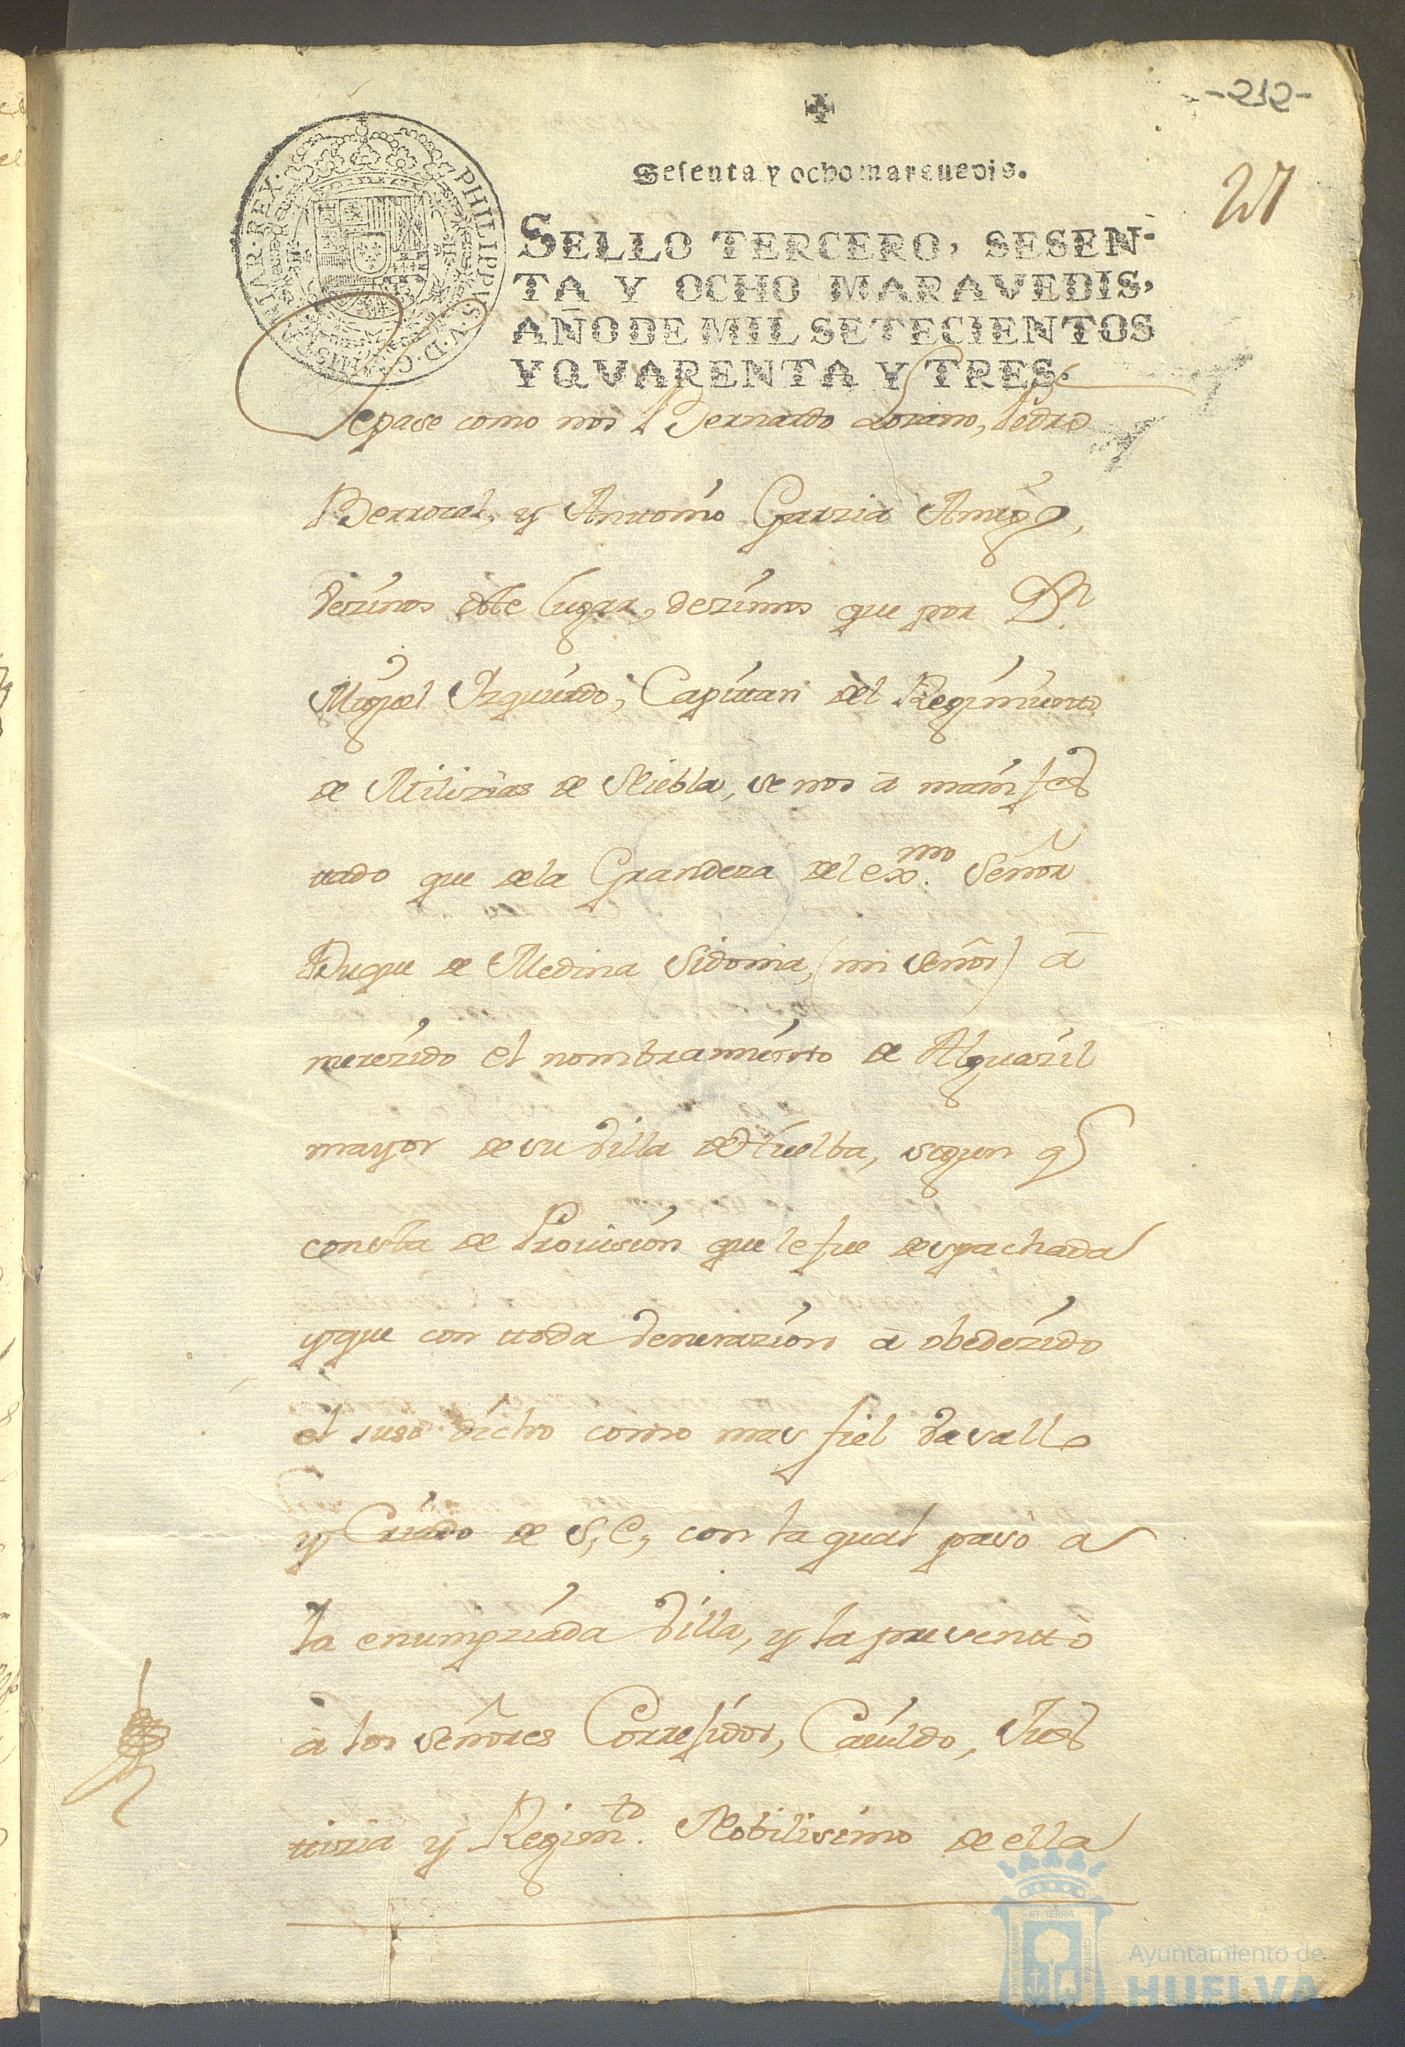 -212-
Sesenta y ocho maravedis.
27
PHILIPPUS. V. D. G. HISPANIAR. REX.
SELLO TERCERO, SESEN-
TA Y OCHO MARAVEDIS,
AÑO DE MIL SETECIENTOS
Y QVARENTA Y TRES.
Sepase como nos Bernardo Lorano, Pedro
Berrocal, y Antonio Garzia
vezinos deste lugar, dezimos que por Dn.
Miguel Izquierdo, Capittan del Regimiento
de Milizias de Niebla, se nos à manifes
tado que de la Grandeza del exmo. Señor
Duque de Medina Sidonia, (mi señor) à
merezido el nombramiento de Alguazil
mayor de su villa de Huelba, segun q
consta de Provision que le fue despachada
y que con ttoda venerazion à obedezido
el suso dicho como mas fiel vasallo
y Criado de S, E, con la qual pasò a
la enumpziada villa, y la presenttò
à los señores Correjidor, Cavildo, Jus
ttizia y Regimto. Nobilisimo de ella
Ayuntamiento de
HUELVA